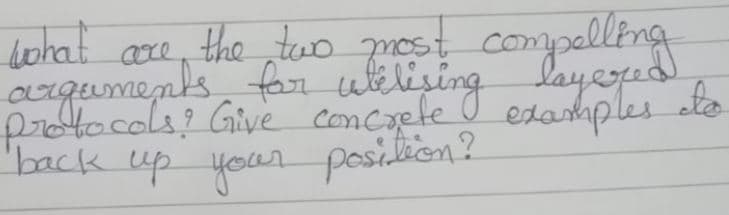 What are the two most compelling
arguments for utilising layered
protocols? Give concrete examples to
back up your position?